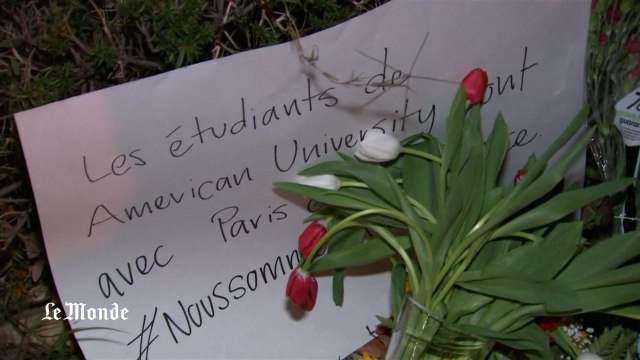 Les étudiants de
American University sont
avec Paris
#Noussomm
Le Monde
guaran